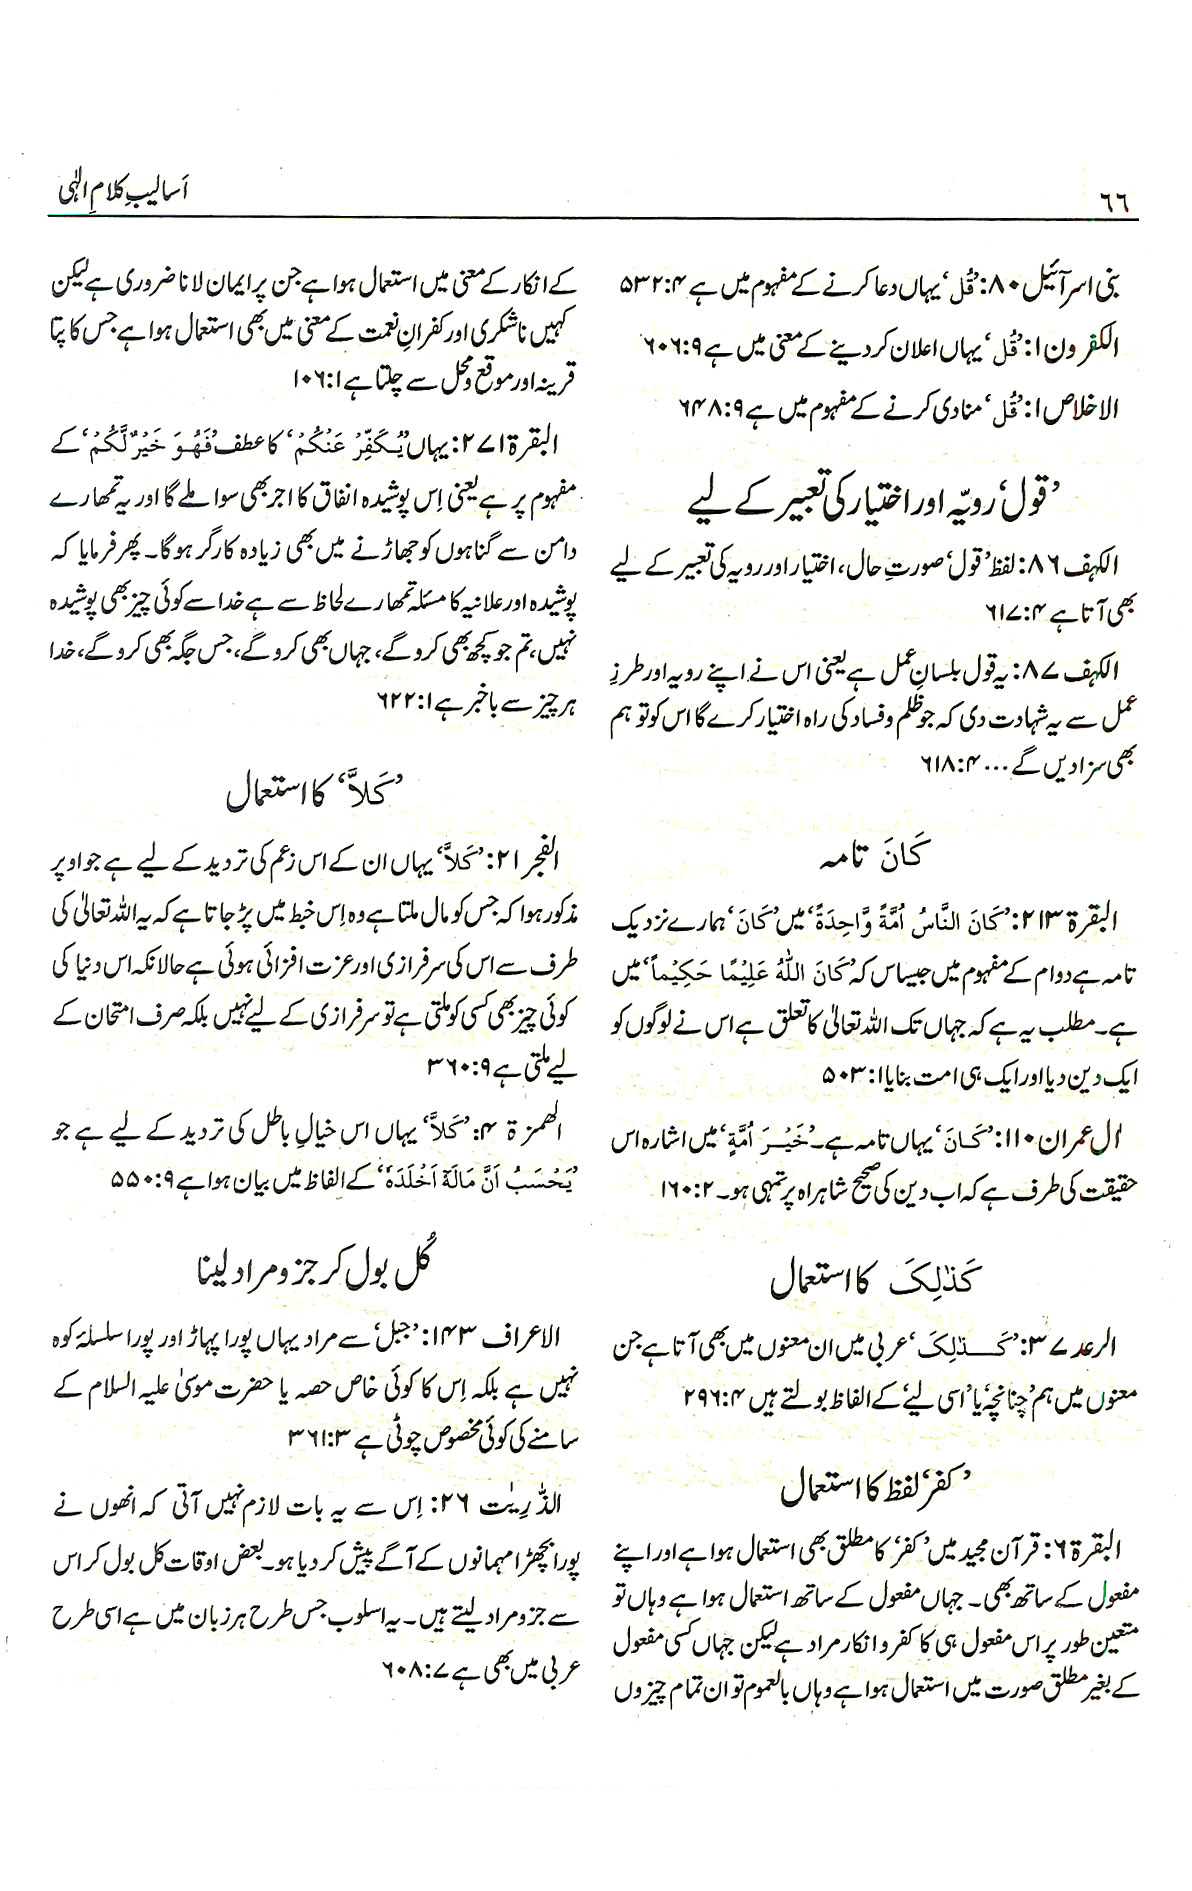 ٦٦
اَسالیبِ کلامِ الٰہی
بنی اسرآئیل ٨٠: ’قُل‘ یہاں دعا کرنے کے مفہوم میں ہے ٥٣٢:٤
الکٰفرون ١: ’قُل‘ یہاں اعلان کردینے کے معنی میں ہے ٦٠٦:٩
الاخلاص ١: ’قُل‘ منادی کرنے کے مفہوم میں ہے ٦٤٨:٩
’قول‘ رویّہ اور اختیار کی تعبیر کے لیے
الکہف ٨٦: لفظ ’قول‘ صورتِ حال، اختیار اور رویہ کی تعبیر کے لیے
بھی آتا ہے ٦١٧:٤
الکہف ٨٧: یہ قول بلسانِ عمل ہے یعنی اس نے اپنے رویہ اور طرزِ
عمل سے یہ شہادت دی کہ جو ظلم و فساد کی راہ اختیار کرے گا اس کو تو ہم
بھی سزا دیں گے ... ٦١٨:٤
کَانَ تامہ
البقرة ٢١٣: ’کَانَ النَّاسُ اُمَّةً وَّاحِدَةً‘ میں ’کَانَ‘ ہمارے نزدیک
تامہ ہے دوام کے مفہوم میں جیسا س کہ ’کَانَ اللّٰهُ عَلِیْمًا حَکِیْماً‘ میں
ہے۔ مطلب یہ ہے کہ جہاں تک اللہ تعالیٰ کا تعلق ہے اس نے لوگوں کو
ایک دین دیا اور ایک ہی امت بنایا ٥٠٣:١
اٰل عمران ١١٠: ’کَـانَ‘ یہاں تامہ ہے۔ ’خَیْـرَ اُمَّةٍ‘ میں اشارہ اس
حقیقت کی طرف ہے کہ اب دین کی صحیح شاہراہ پر تمہی ہو۔ ١٦٠:٢
کَذٰلِکَ کا استعمال
الرعد ٣٧: ’کَــذٰلِکَ‘ عربی میں ان معنوں میں بھی آتا ہے جن
معنوں میں ہم ’چنانچہ‘ یا ’اسی لیے‘ کے الفاظ بولتے ہیں ٢٩٦:٤
’کفر‘ لفظ کا استعمال
البقرة ٦: قرآن مجید میں ’کفر‘ کا مطلق بھی استعمال ہوا ہے اور اپنے
مفعول کے ساتھ بھی۔ جہاں مفعول کے ساتھ استعمال ہوا ہے وہاں تو
متعین طور پر اس مفعول ہی کا کفر و انکار مراد ہے لیکن جہاں کسی مفعول
کے بغیر مطلق صورت میں استعمال ہوا ہے وہاں بالعموم تو ان تمام چیزوں
کے انکار کے معنی میں استعمال ہوا ہے جن پر ایمان لانا ضروری ہے لیکن
کہیں ناشکری اور کفرانِ نعمت کے معنی میں بھی استعمال ہوا ہے جس کا پتا
قرینہ اور موقع و محل سے چلتا ہے ١٠٦:١
البقرة ٢٧١: یہاں ’یُـکَفِّرْ عَنْکُمْ‘ کا عطف ’فَهُـوَ خَیْـرٌ لَّکُمْ‘ کے
مفہوم پر ہے یعنی اِس پوشیدہ انفاق کا اجر بھی سوا ملے گا اور یہ تمھارے
دامن سے گناہوں کو جھاڑنے میں بھی زیادہ کارگر ہوگا۔ پھر فرمایا کہ
پوشیدہ اور علانیہ کا مسئلہ تمھارے لحاظ سے ہے خدا سے کوئی چیز بھی پوشیدہ
نہیں، تم جو کچھ بھی کرو گے، جہاں بھی کرو گے، جس جگہ بھی کرو گے، خدا
ہر چیز سے باخبر ہے ٦٢٢:١
’کَلاَّ‘ کا استعمال
الفجر ٢١: ’کَلاَّ‘ یہاں ان کے اس زعم کی تردید کے لیے ہے جو اوپر
مذکور ہوا کہ جس کو مال ملتا ہے وہ اِس خبط میں پڑ جاتا ہے کہ یہ اللہ تعالیٰ کی
طرف سے اس کی سرفرازی اور عزت افزائی ہوئی ہے حالانکہ اس دنیا کی
کوئی چیز بھی کسی کو ملتی ہے تو سرفرازی کے لیے نہیں بلکہ صرف امتحان کے
لیے ملتی ہے ٣٦٠:٩
الهمزة ٤: ’کَلاَّ‘ یہاں اس خیالِ باطل کی تردید کے لیے ہے جو
’یَحْسَبُ اَنَّ مَالَهٗٓ اَخْلَدَهٗ‘ کے الفاظ میں بیان ہوا ہے ٥٥٠:٩
کُل بول کر جزو مراد لینا
الاعراف ١٤٣: ’جبل‘ سے مراد یہاں پورا پہاڑ اور پورا سلسلۂ کوہ
نہیں ہے بلکہ اِس کا کوئی خاص حصہ یا حضرت موسیٰ علیہ السلام کے
سامنے کی کوئی مخصوص چوٹی ہے ٣٦١:٣
الذّٰرِیٰت ٢٦: اِس سے یہ بات لازم نہیں آتی کہ انھوں نے
پورا بچھڑا مہمانوں کے آگے پیش کر دیا ہو۔ بعض اوقات کل بول کر اس
سے جزو مراد لیتے ہیں۔ یہ اسلوب جس طرح ہر زبان میں ہے اسی طرح
عربی میں بھی ہے ٦٠٨:٧